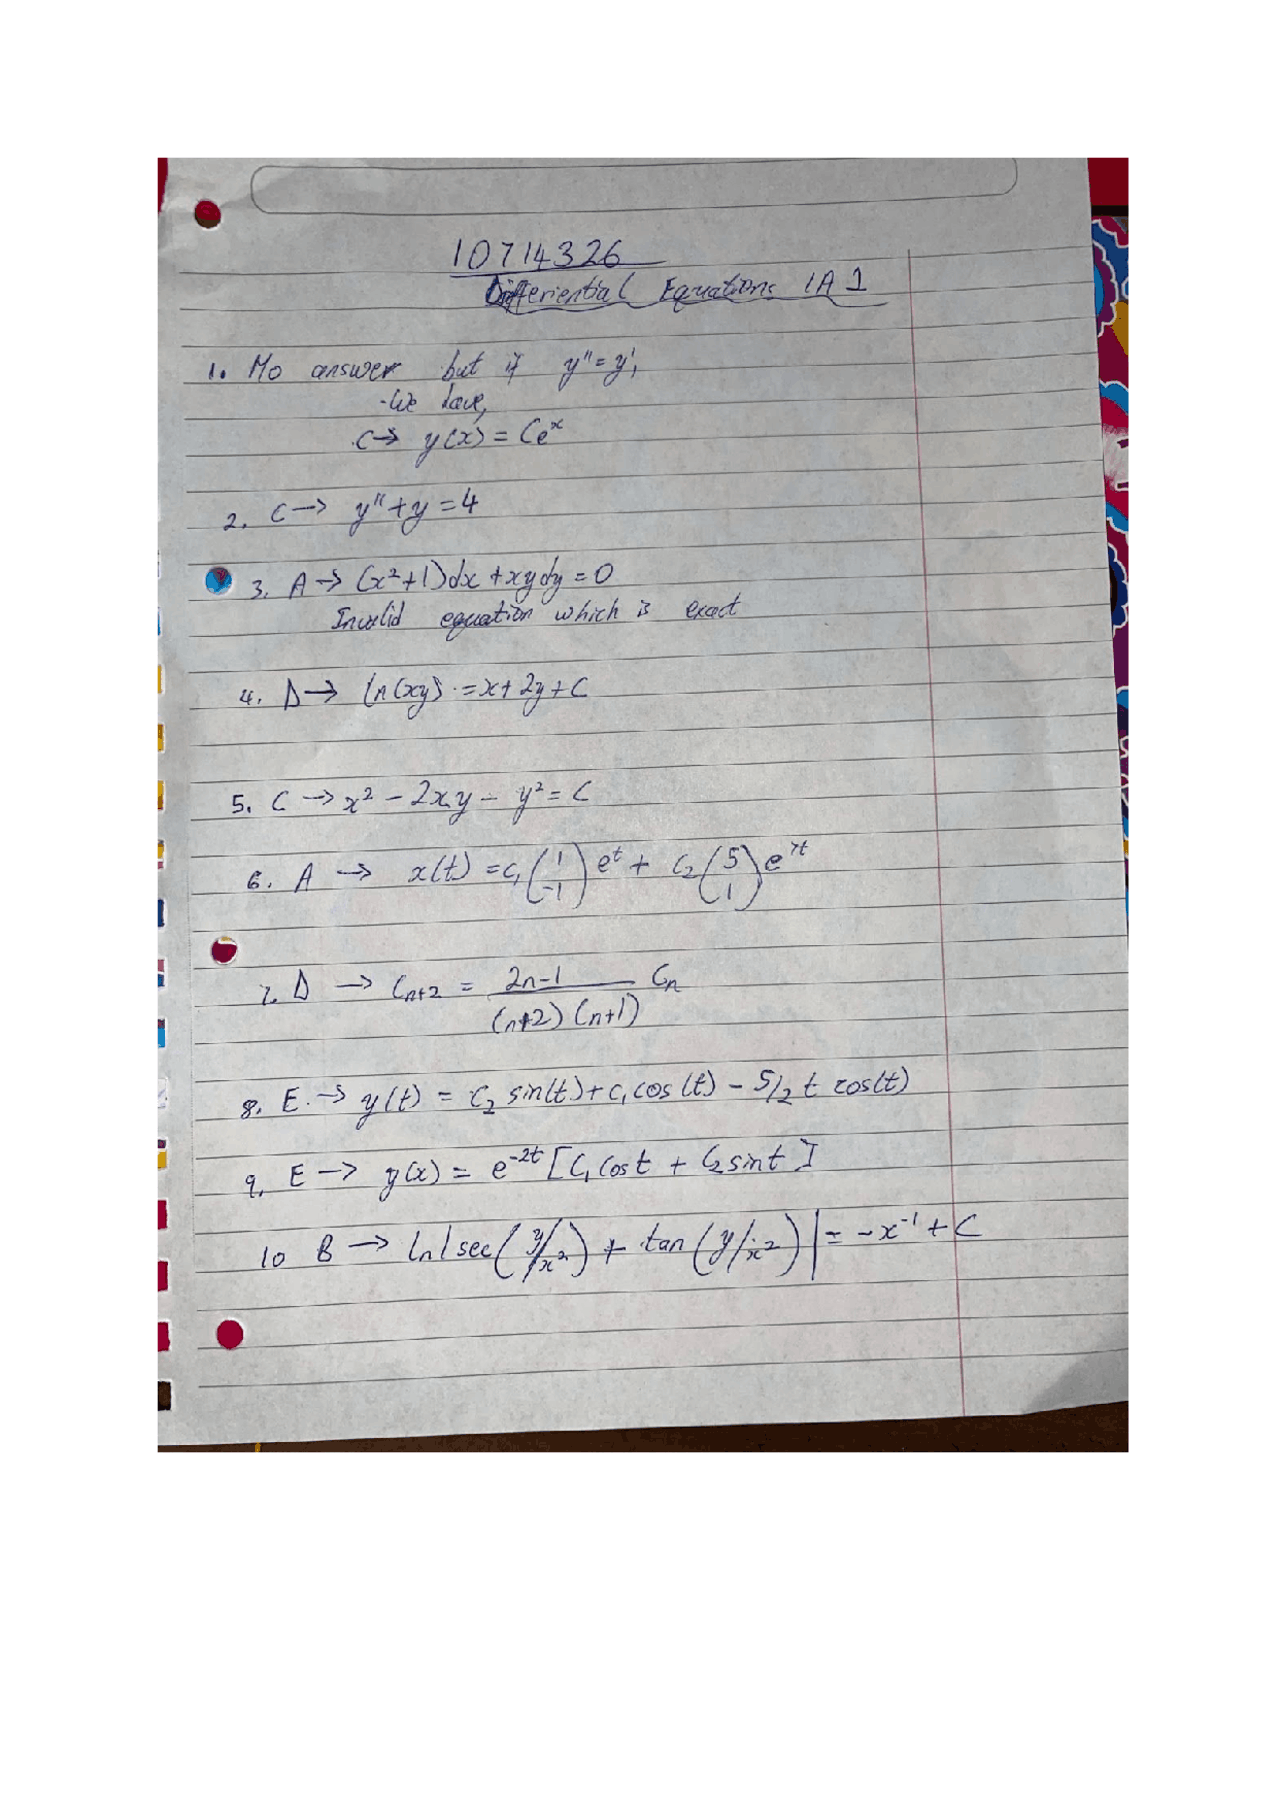 10714326
Differiential Equations IA 1
1. No answer but if y'' = y',
- We have,
C → y(x) = Ceˣ
2. C → y'' + y = 4
3. A → (x²+1)dx + xydy = 0
Invalid equation which is exact
4. D → ln(xy) = x + 2y + C
5. C → x² - 2xy - y² = C
6. A → x(t) = C₁ (1 -1) eᵗ + C₂ (5 1) e⁷ᵗ
7. D → Cₙ₊₂ = 2n-1 / (n+2)(n+1) Cₙ
8. E → y(t) = C₂ sin(t) + C₁ cos(t) - 5/2 t cos(t)
9. E → y(x) = e⁻²ᵗ [C₁ cos t + C₂ sin t]
10 B → ln|sec(y/x²) + tan(y/x²)| = -x⁻¹ + C